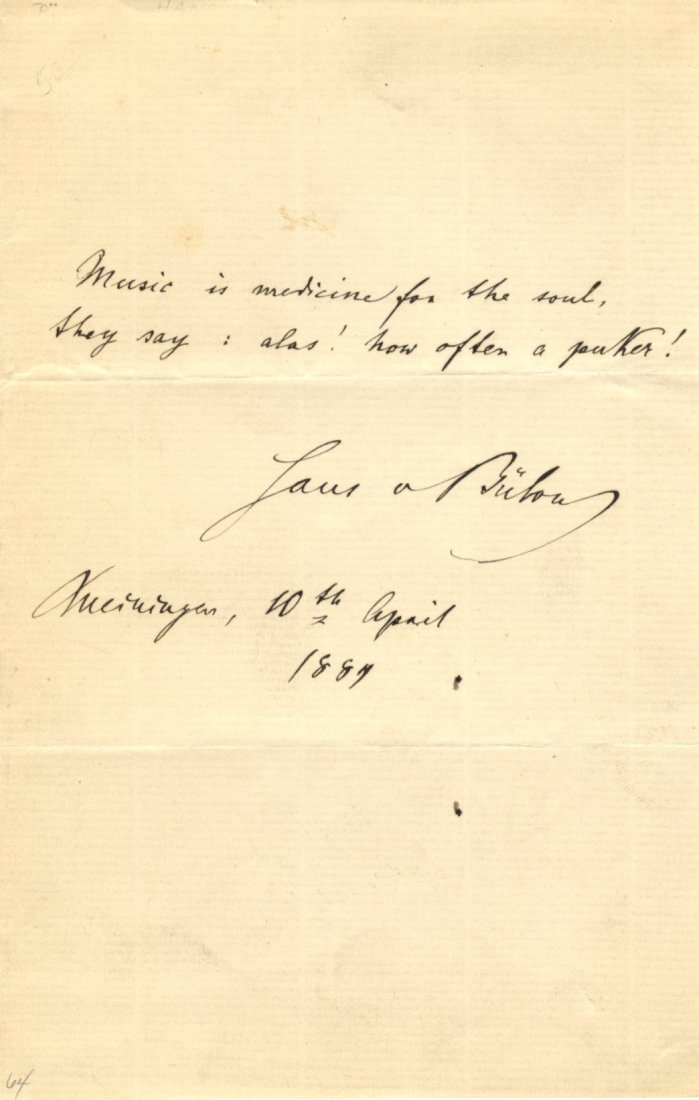 Music is medicine for the soul,
they say : alas! how often a puker!
Hans v Bülow
Meiningen, 10th April
1884
64